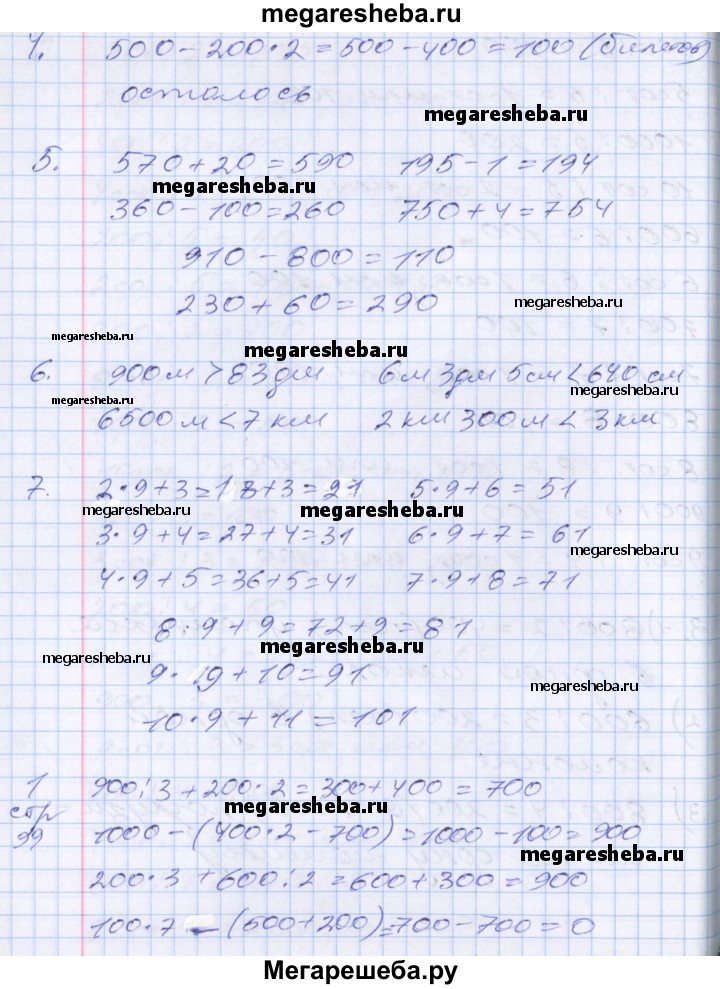 megaresheba.ru
4. 500 - 200·2 = 500 - 400 = 100 (билетов)
осталось
megaresheba.ru
5. 570 + 20 = 590 195 - 1 = 194
megaresheba.ru
360 - 100 = 260 750 + 4 = 754
910 - 800 = 110
230 + 60 = 290 megaresheba.ru
megaresheba.ru
megaresheba.ru
6. 900 м > 83 дм 6 м 3 дм 5 см < 640 см
megaresheba.ru megaresheba.ru
6500 м < 7 км 2 км 300 м < 3 км
7. 2·9+3=18+3=21 5·9+6=51
megaresheba.ru
3·9+4=27+4=31 6·9+7=61
megaresheba.ru
4·9+5=36+5=41 7·9+8=71
8·9+9=72+9=81
megaresheba.ru
megaresheba.ru
9·9+10=91
megaresheba.ru
10·9+11=101
1 900:3+200·2=300+400=700
megaresheba.ru
стр 99 1000-(400·2-700)=1000-100=900
megaresheba.ru
200·3+600:2=600+300=900
100·7-(500+200)=700-700=0
Мегарешеба.ру